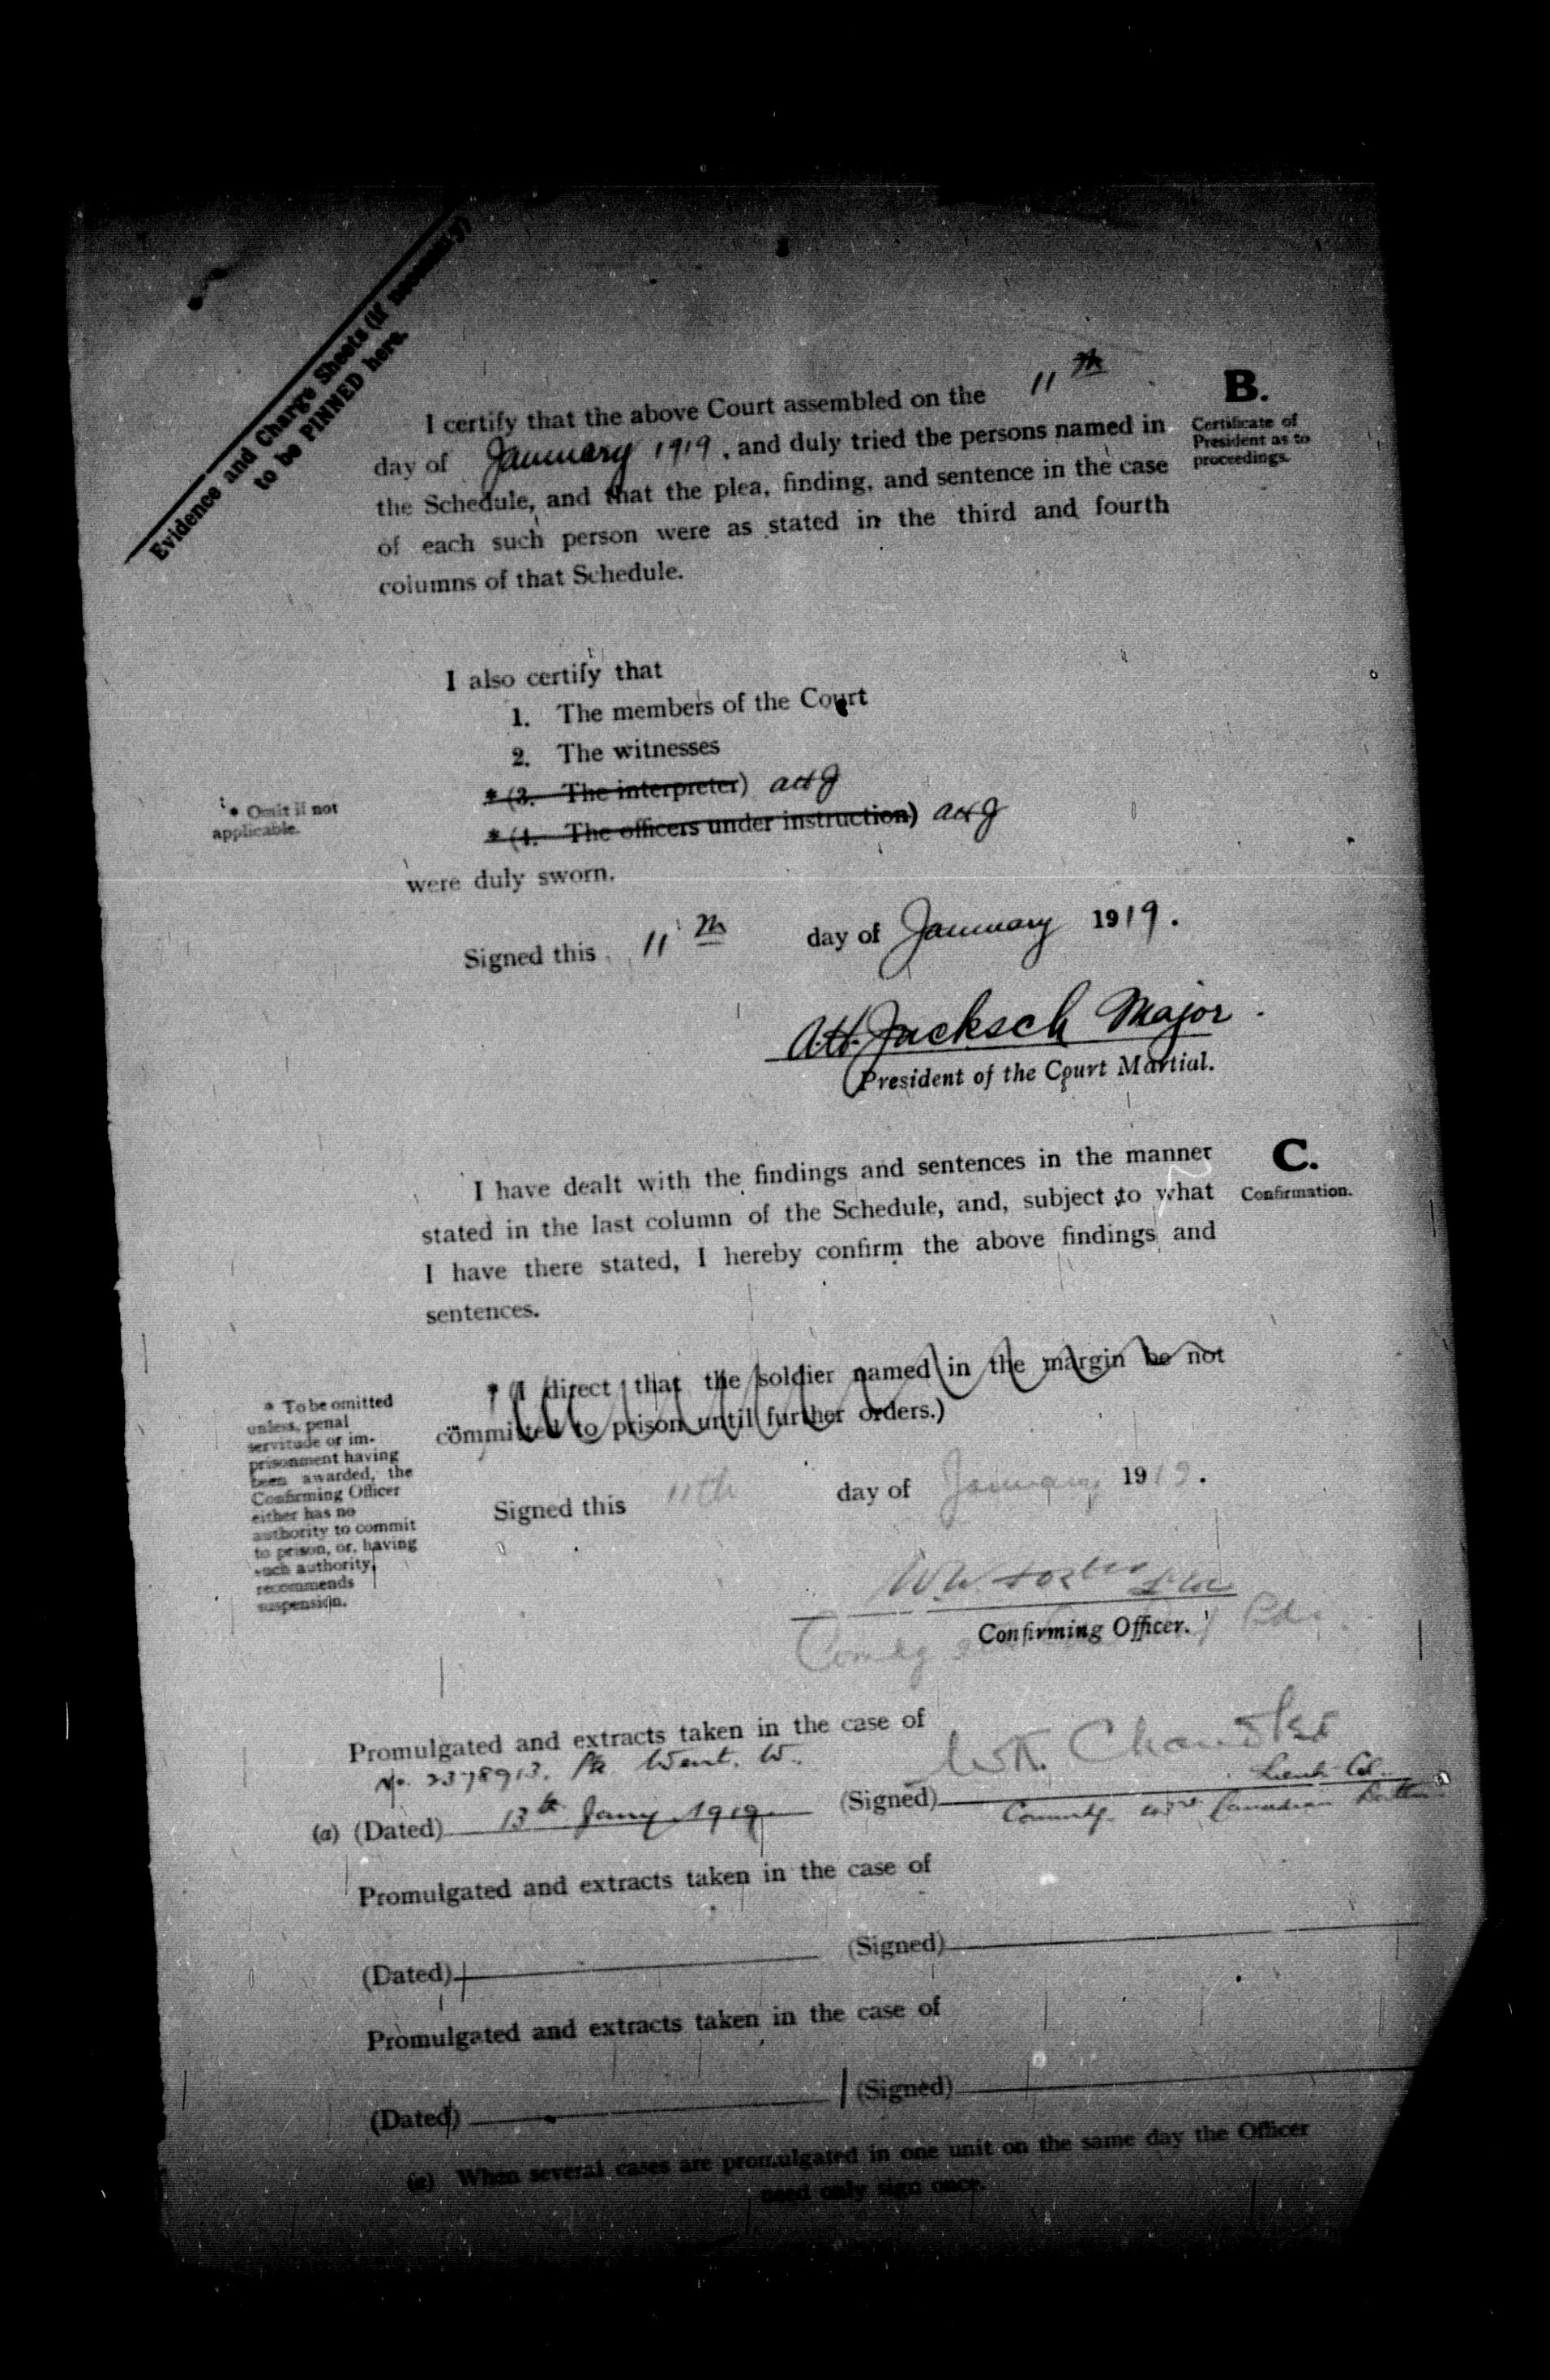 Evidence and Charge Sheets (if necessary)
to be PINNED here.
I certify that the above Court assembled on the 11th
day of January 1919, and duly tried the persons named in
the Schedule, and that the plea, finding, and sentence in the case
of each such person were as stated in the third and fourth
columns of that Schedule.
B.
Certificate of
President as to
proceedings.
I also certify that
1. The members of the Court
2. The witnesses
* (3. The interpreter) AHJ
* (4. The officers under instruction) AHJ
* Omit if not
applicable.
were duly sworn.
Signed this 11th day of January 1919.
A.H. Jacksch Major
President of the Court Martial.
I have dealt with the findings and sentences in the manner
stated in the last column of the Schedule, and, subject to what
I have there stated, I hereby confirm the above findings and
sentences.
C.
Confirmation.
* (I direct that the soldier named in the margin be not
committed to prison until further orders.)
* To be omitted
unless, penal
servitude or im-
prisonment having
been awarded, the
Confirming Officer
either has no
authority to commit
to prison, or, having
such authority,
recommends
suspension.
Signed this 11th day of January 1919.
W.W. Foster
Confirming Officer.
Promulgated and extracts taken in the case of
No. 2378913. Pte. Went. W.
(a) (Dated) 13th Jany 1919 (Signed)
Lieut. Col.
Canadian Battn.
Promulgated and extracts taken in the case of
(Dated) (Signed)
Promulgated and extracts taken in the case of
(Dated) (Signed)
(a) When several cases are promulgated in one unit on the same day the Officer
need only sign once.